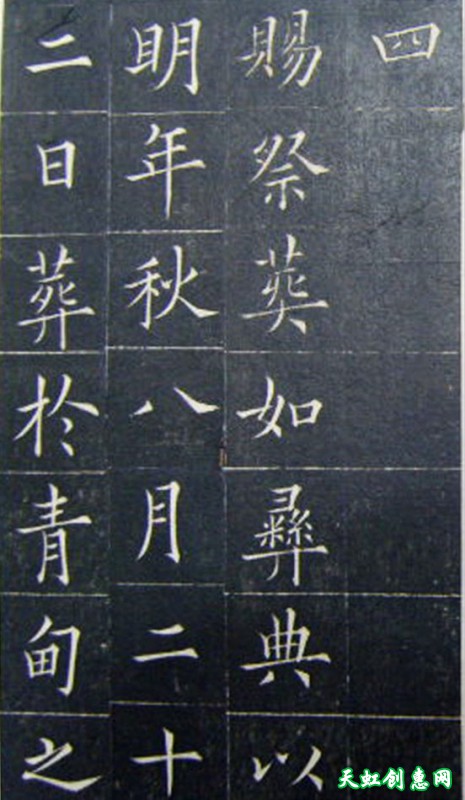 四
賜祭葬如彝典以
明年秋八月二十
二日葬於青甸之
天虹创惠网